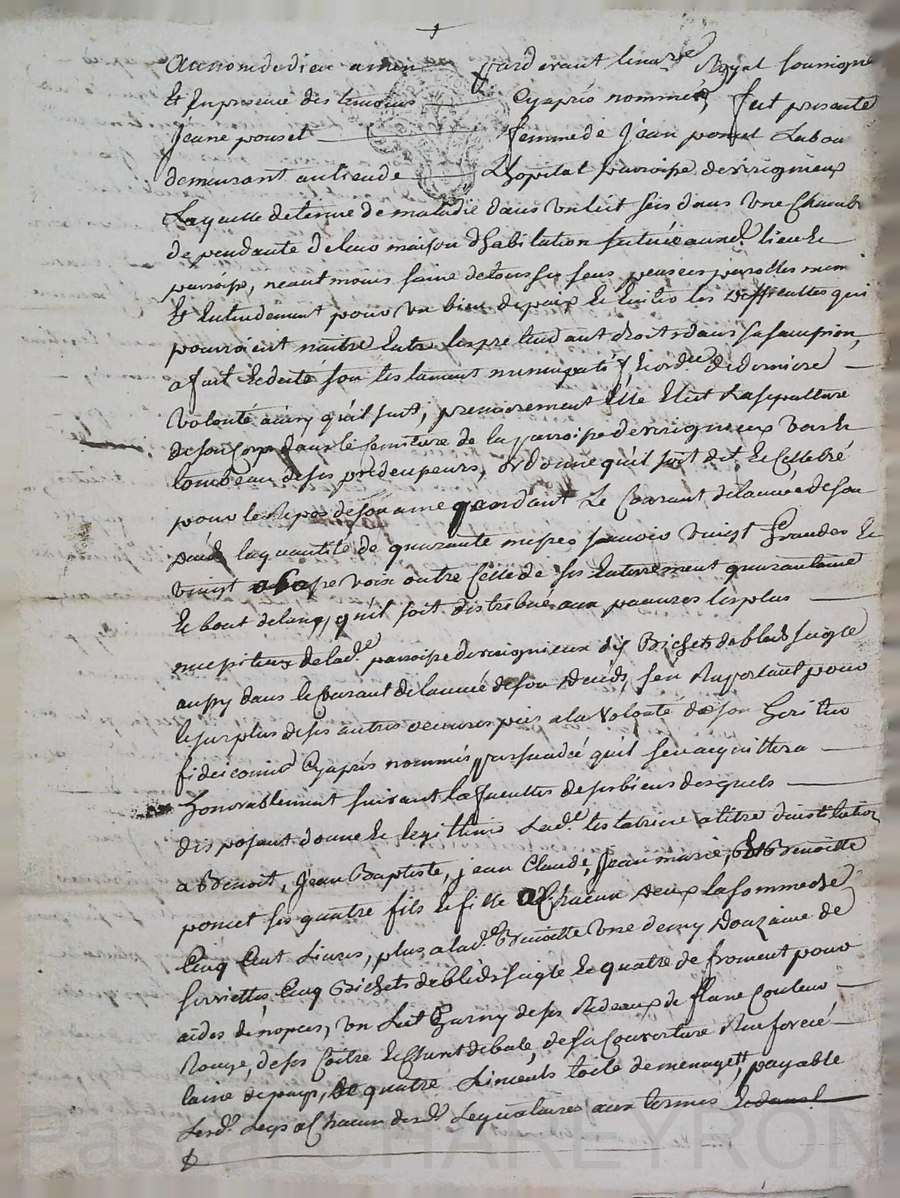 Au nom de dieu amen pard evant le nore Royal soussigné
Et En presence des temoins cyaprés nommés, fut presante
jeane ponset femme de jean poncet Labou
demeurant au lieu de Lhopital parroisse dervignieux
Laquelle detenue de maladie dans un lit sis dans une chamb
dependante de leur maison d'habitation situéé aud. lieu Et
parroisse, neant moins saine de tous ses sens pensees parolles mem
Et Entendement pour un bien de paix Et Eviter les difficultes qui
pourroient naitre Entre les pretendant droits dans sa
a fait Et dicte son testament nuncupatif Et ord.re de derniere
volonté ainsy qu'il suit, premierement Elle Elit La sepulture
de son Corps dans le cemitiere de la parroise dervigneux dans le
tombeau de ses predecesseurs, ordonne qu'il soit dit Et Cellebré
pour le Repos de son ame pendant Le Courant de l'année de son
decés la quantité de quarante messes sçavoir vingt Grandes Et
vingt a basse voix outre Celle de ses Enterrement quarantaine
Et bout de lang, qu'il soit distribué aux pauvres les plus
necessiteux de lad.e parroise dervignieux dix Bichets de bled seigle
aussy dans le Courant de l'année de son decés, s'en Raportant pour
le surplus de ses autres oeuvres pies a la volonté de son heritier
fideicomis Cyaprés nommés persuadéé quil sen acquittera
honorablement suivant la faculttes de ses biens desquels
disposant donne Et legue Lad.e testatrice a titre d'institution
a Benoit, jean Baptiste, jean Claude, jean marie, Et Benoitte
poncet ses quatre fils Et fille a Chacun deux La somme de
Cinq Cent Livres, plus a lad.e Benoitte une demy Douzaine de
serviettes Cinq Bichets de bleds seigle Et quatre de froment pour
aides de nopces, un Lit Garny de ses Rideaux de flane Couleur
Rouge, de ses Coitre Et Chevet de bale, de sa Couverture
laine de pays, Et quatre Linceuls toile de menagett, payable
Lesd. Legs a Chacun desd. Legataires aux termes
Pascal CHAREYRON